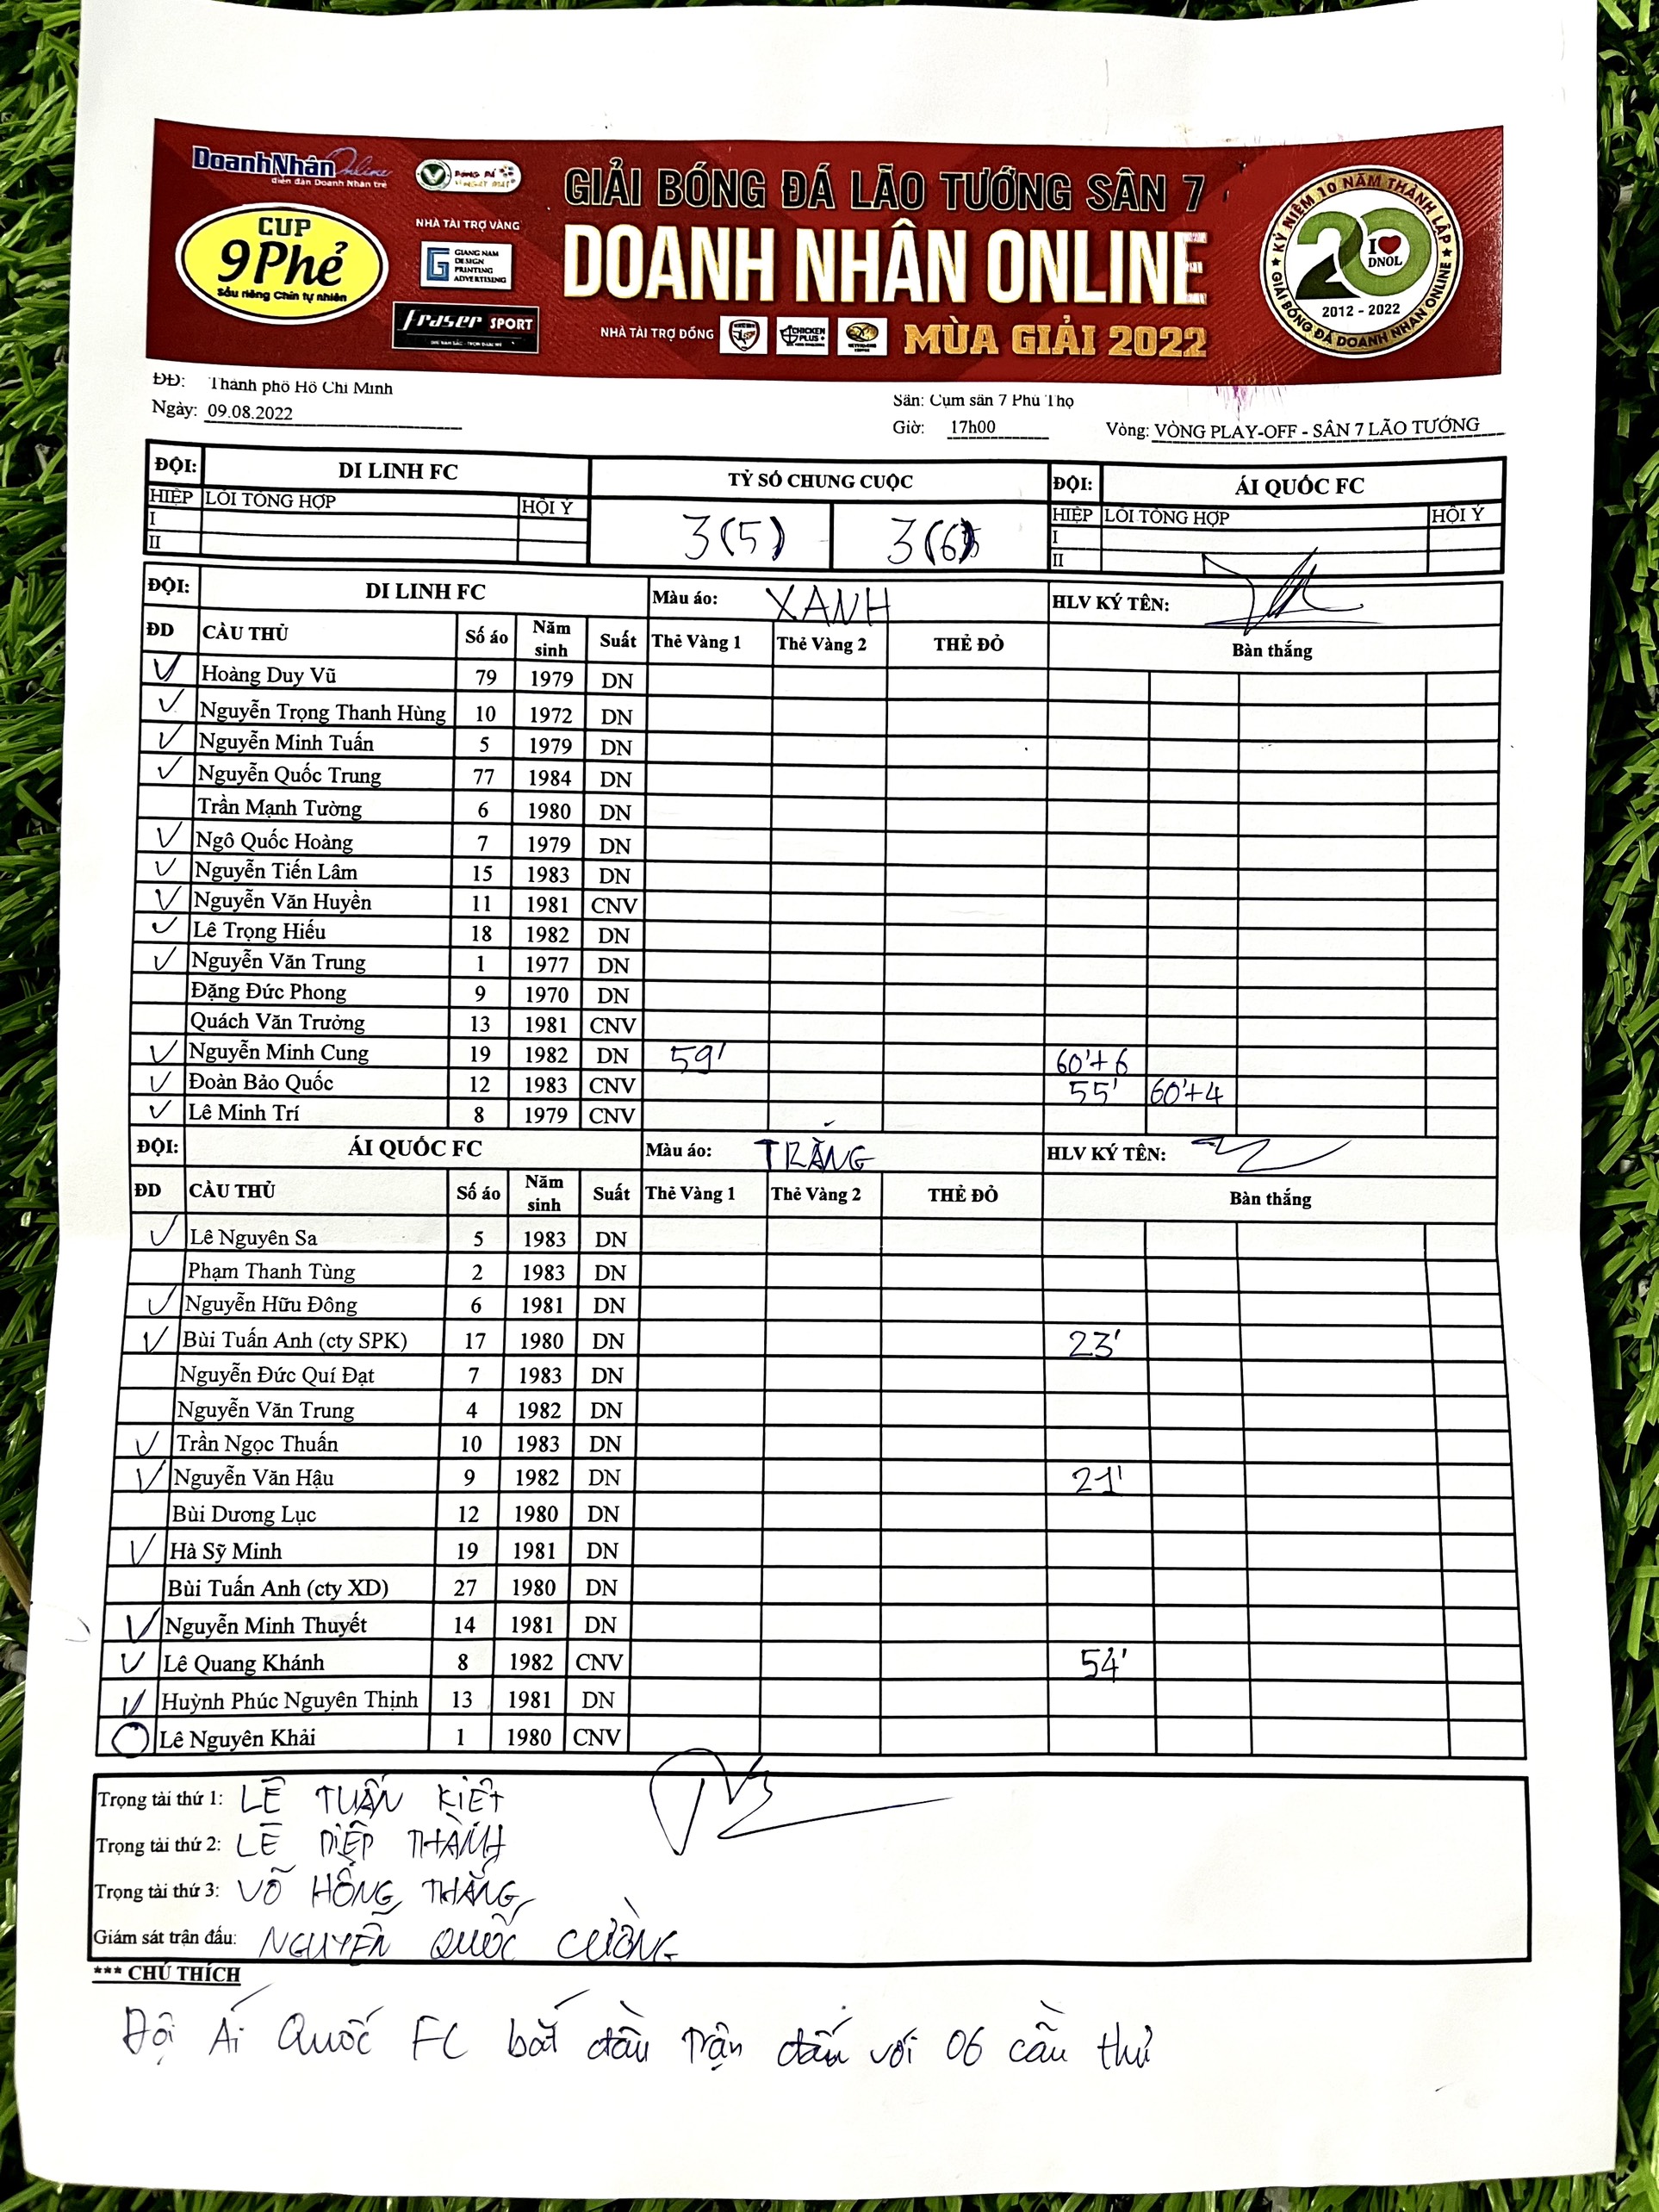 DoanhNhân Online
diễn đàn Doanh Nhân trẻ
CUP
9Phẻ
Sầu riêng Chín tự nhiên
NHÀ TÀI TRỢ VÀNG
GIANG NAM
DESIGN
PRINTING
ADVERTISING
Fraser SPORT
GIẢI BÓNG ĐÁ LÃO TƯỚNG SÂN 7
DOANH NHÂN ONLINE
NHÀ TÀI TRỢ ĐỒNG
CHICKEN PLUS+
MÙA GIẢI 2022
KỶ NIỆM 10 NĂM THÀNH LẬP
20
I ❤ DNOL
2012 - 2022
GIẢI BÓNG ĐÁ DOANH NHÂN ONLINE
ĐĐ: Thành phố Hồ Chí Minh
Sân: Cụm sân 7 Phú Thọ
Ngày: 09.08.2022 Giờ: 17h00 Vòng: VÒNG PLAY-OFF - SÂN 7 LÃO TƯỚNG
ĐỘI: DI LINH FC TỶ SỐ CHUNG CUỘC ĐỘI: ÁI QUỐC FC
HIỆP LỖI TỔNG HỢP HỘI Ý 3(5) 3(6) HIỆP LỖI TỔNG HỢP HỘI Ý
I I
II II
ĐỘI: DI LINH FC Màu áo: XANH HLV KÝ TÊN:
ĐD CẦU THỦ Số áo Năm sinh Suất Thẻ Vàng 1 Thẻ Vàng 2 THẺ ĐỎ Bàn thắng
✓ Hoàng Duy Vũ 79 1979 DN
✓ Nguyễn Trọng Thanh Hùng 10 1972 DN
✓ Nguyễn Minh Tuấn 5 1979 DN
✓ Nguyễn Quốc Trung 77 1984 DN
Trần Mạnh Tường 6 1980 DN
✓ Ngô Quốc Hoàng 7 1979 DN
✓ Nguyễn Tiến Lâm 15 1983 DN
✓ Nguyễn Văn Huyền 11 1981 CNV
✓ Lê Trọng Hiếu 18 1982 DN
✓ Nguyễn Văn Trung 1 1977 DN
Đặng Đức Phong 9 1970 DN
Quách Văn Trường 13 1981 CNV
✓ Nguyễn Minh Cung 19 1982 DN 59' 60'+6
✓ Đoàn Bảo Quốc 12 1983 CNV 55' 60'+4
✓ Lê Minh Trí 8 1979 CNV
ĐỘI: ÁI QUỐC FC Màu áo: TRẮNG HLV KÝ TÊN:
ĐD CẦU THỦ Số áo Năm sinh Suất Thẻ Vàng 1 Thẻ Vàng 2 THẺ ĐỎ Bàn thắng
✓ Lê Nguyên Sa 5 1983 DN
Phạm Thanh Tùng 2 1983 DN
✓ Nguyễn Hữu Đông 6 1981 DN
✓ Bùi Tuấn Anh (cty SPK) 17 1980 DN 23'
Nguyễn Đức Quí Đạt 7 1983 DN
Nguyễn Văn Trung 4 1982 DN
✓ Trần Ngọc Thuấn 10 1983 DN
✓ Nguyễn Văn Hậu 9 1982 DN 21'
Bùi Dương Lục 12 1980 DN
✓ Hà Sỹ Minh 19 1981 DN
Bùi Tuấn Anh (cty XD) 27 1980 DN
✓ Nguyễn Minh Thuyết 14 1981 DN
✓ Lê Quang Khánh 8 1982 CNV 54'
✓ Huỳnh Phúc Nguyên Thịnh 13 1981 DN
Lê Nguyên Khải 1 1980 CNV
Trọng tài thứ 1: LÊ TUẤN KIỆT
Trọng tài thứ 2: LÊ DIỆP THÀNH
Trọng tài thứ 3: VÕ HỒNG THẮNG
Giám sát trận đấu: NGUYỄN QUỐC CƯỜNG
*** CHÚ THÍCH
Đội Ái Quốc FC bắt đầu trận đấu với 06 cầu thủ